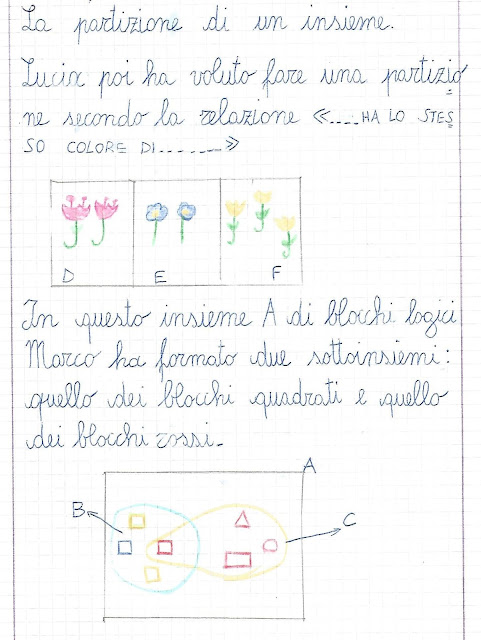 La partizione di un insieme.
Lucia poi ha voluto fare una partizio
ne secondo la relazione «....HA LO STES
SO COLORE DI.......»
D E F
In questo insieme A di blocchi logici
Marco ha formato due sottoinsiemi:
quello dei blocchi quadrati e quello
dei blocchi rossi.
A
B C